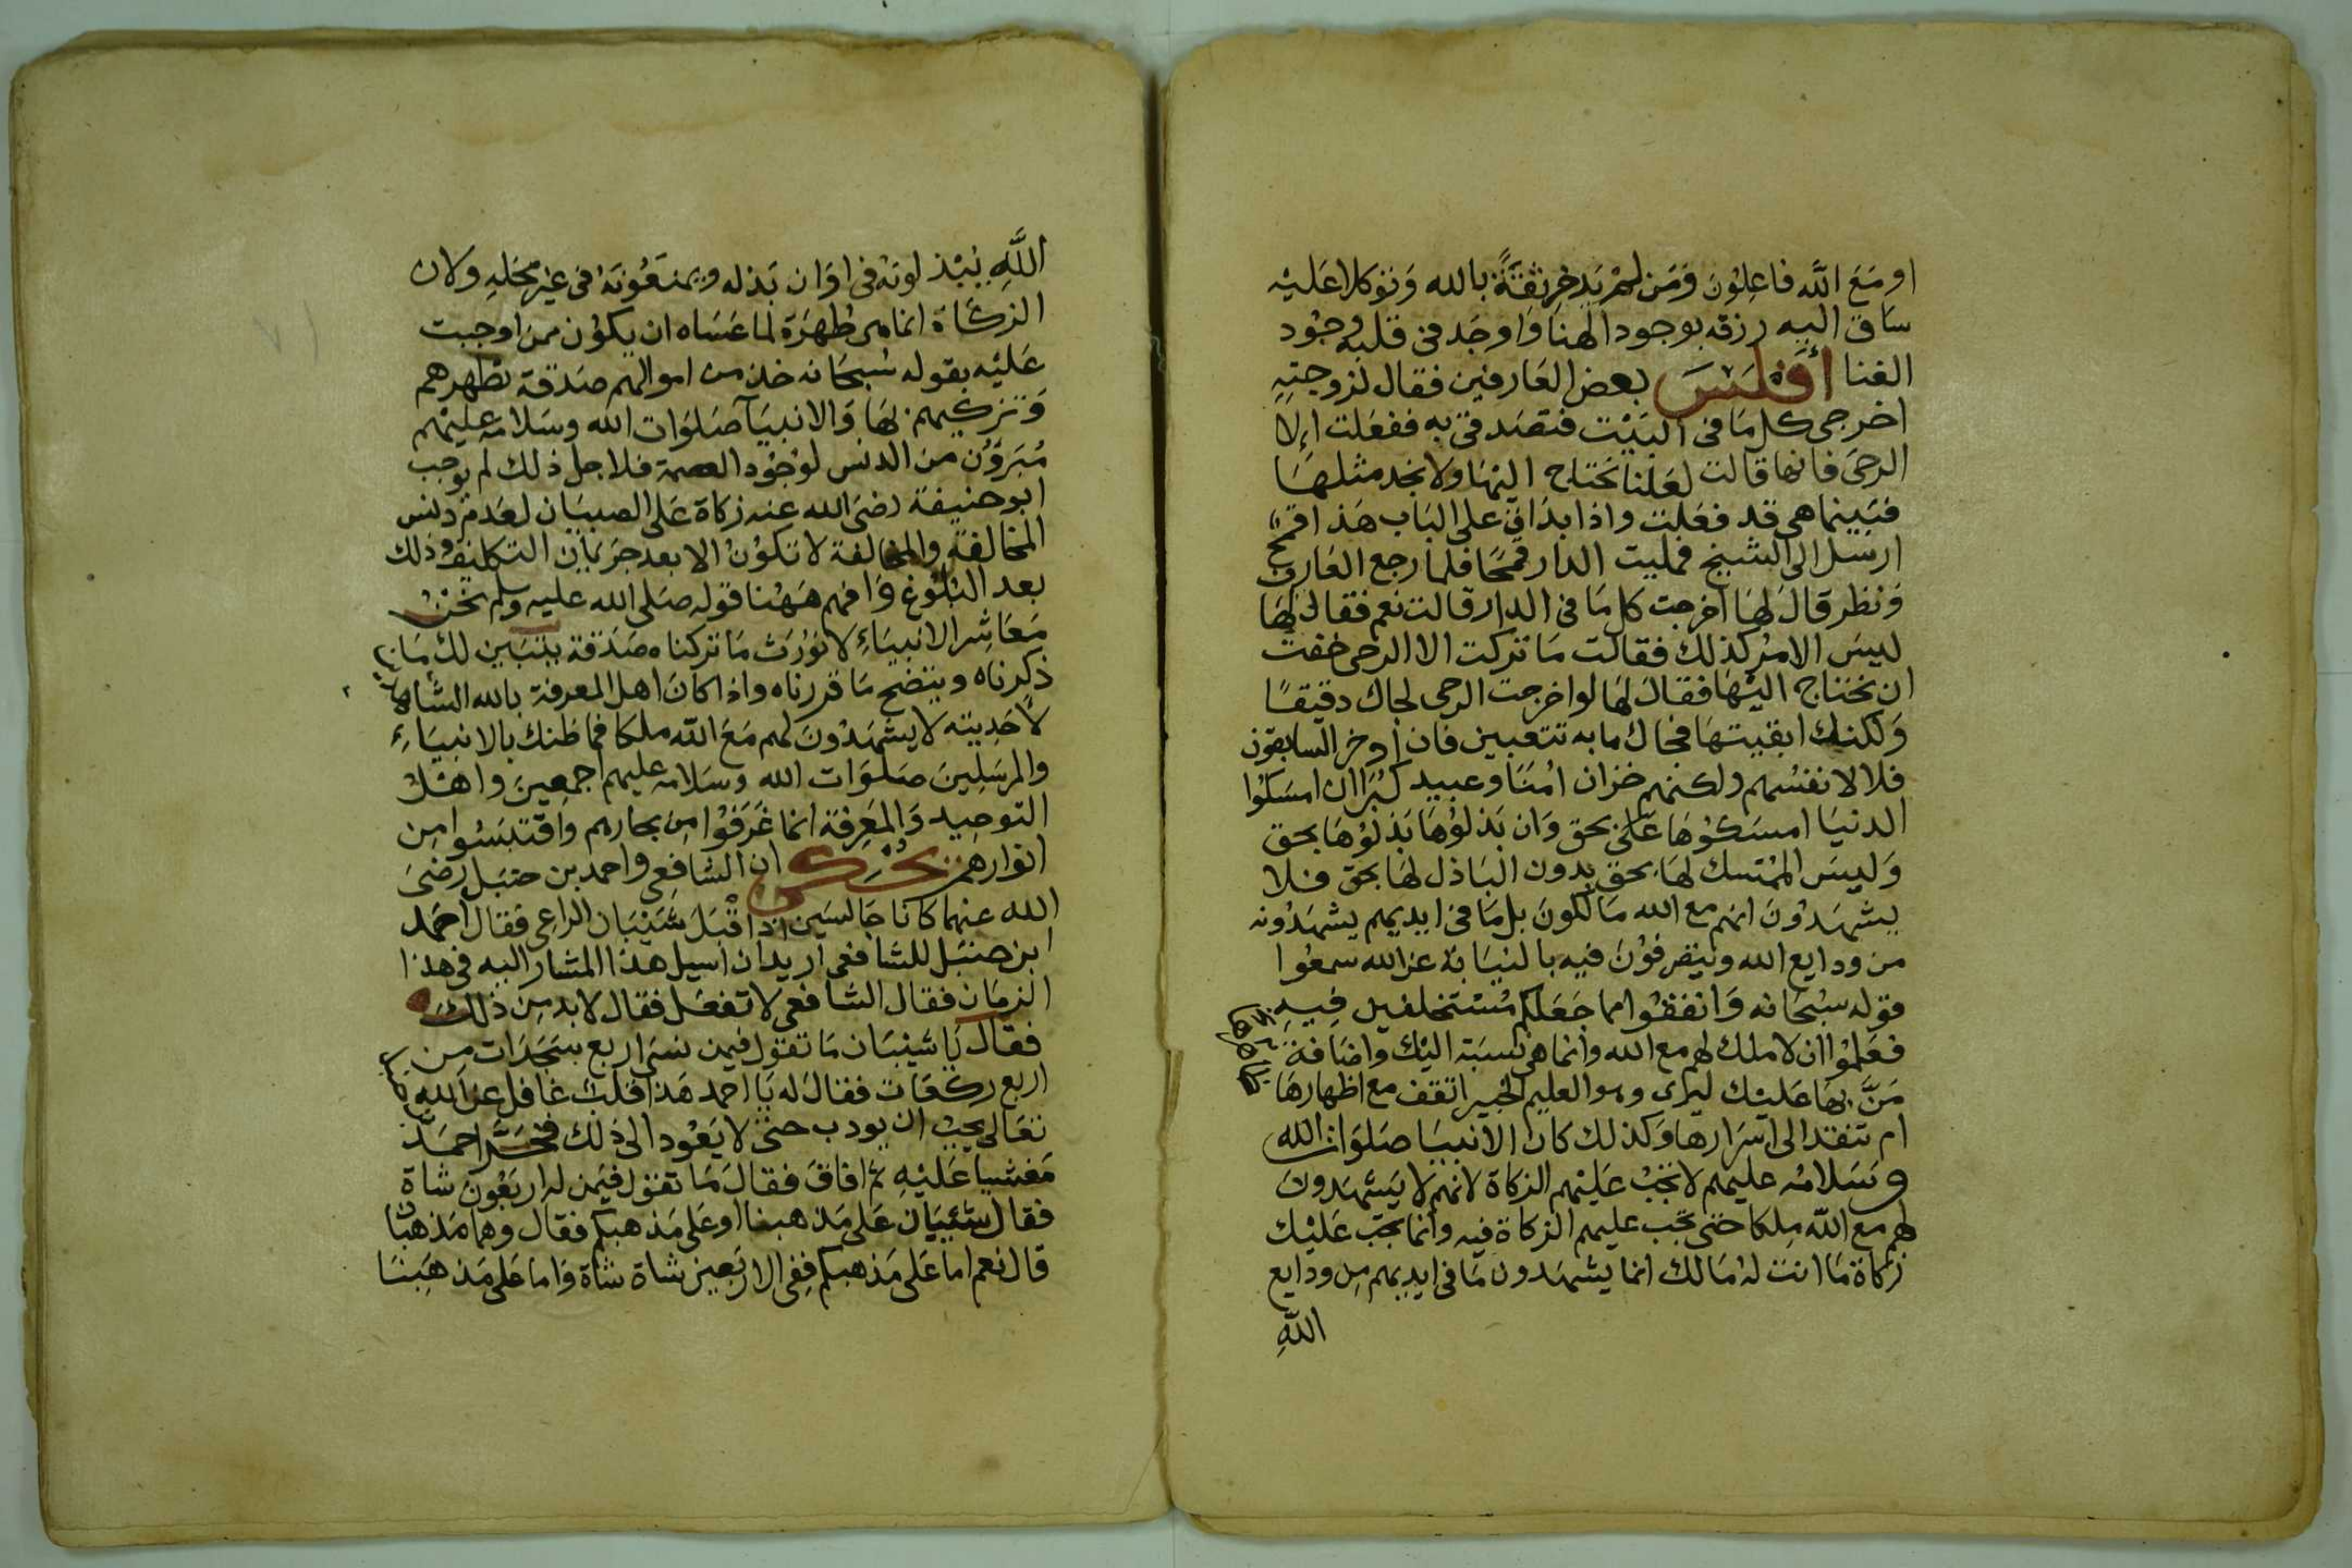 او مَعَ اللَّه فاعِلوُنَ وَمَن لم يَدخِر ثقةً بالله وَتوكلا عَليْه
سَاق اليه رزقه بوجود الهنا وَاوجَد فى قلبه وجُود
الغنا أفلَسَ بعض العَارفين فقال لزوجتِهِ
اخرجى كل مَا فى البَيْت فتصَدقى به ففعَلت اِلا
الرحىَ فانها قالت لعَلنا نحتاج اليْهَا ولا نجد مثلهَا
فبَينما هى قد فعَلت واذا بدَاقٍ على البَاب هَذا قمحٌ
ارسَل الى الشيخ فمليت الدار قمحًا فلما رجع العَارف
وَنظر قالَ لهَا أخرجت كل مَا فى الدار قالت نعم فقالَ لهَا
ليسَ الامْر كذلك فقالت مَا تركت الا الرحى خفتُ
ان نحتاج اليْهَا فقالَ لهَا لو اخرجت الرحى لجاك دقيقًا
وَلكنك ابقيتهَا فجاك ما به تتعبين فان ادخر السابقون
فلا لانفسُهم ولكنهم خزان امُنَا وعبيد كبُرَا ان امسَكوُا
الدنيَا امسَكوُهَا عَلىَ بحق وَان بَذلوُهَا بَذلوُهَا بحق
وَليسَ الممْتسك لهَا بحق بدون البَاذل لهَا بحق فلا
يشهَدوُنَ انهم مع الله مَالكونَ بل مَا فى ايديهم يشهَدُونه
من ودايع الله ويتصَرفوُنَ فيه بالنيَابَة عن الله سمعُوا
قوله سُبحَانه وَانفقوُا مما جَعَلكم مُسْتخلفين فِيهِ
فعَلموُا ان لا ملك لهم مع الله وانما هى نسبَة اليْك واضَافة
مَنَّ بهَا عَليْك ليرى وهو العليم الخبير اتقف مع اظهارهَا
ام تنفد الى اسَرارها وَكذلك كان الانبيَا صَلوَات الله
وَسَلامُه عليهم لا تجَبُ عَليْهم الزكاة لانهم لا يَشهَدونَ
لهم مع اللّه ملكا حتى تجب عليهم الزكاة فيه وانما يجَب عَليْك
زكاة مَا انت لهُ مَالك انما يشهَدون مَا فى ايديهم مِن ودايع
اللَّهِ
اللَّهِ يَبْذلونَهُ فى اوَان بَذله ويمنعُونَهُ فى غيْر محَلهِ ولان
الزكاة انما هى طُهرَة لما عَسَاه ان يكوُن ممن اوجبت
عَليْه بقوله سُبحَانه خذ من اموالهم صَدقة تطهرهم
وَتزكيهم بهَا وَالانبيَآ صَلوَات الله وسَلامه عليْهم
مُبَرؤُن من الدنس لوُجوُد العصمة فلاجل ذلك لم يوجب
ابو حنيفة رضىَ الله عنه زكاة عَلى الصبيَان لعَدم دنس
المخالفة والمخالفة لا تكوُنْ الا بعد جرَيان التكليف وذلك
بعد البُلوُغ وَافهم هَهْنا قوله صَلى الله عليه وسلم نحنُ
مَعَاشِر الانبيَاءِ لا نوُرَث مَا تركناه صَدقة يتبَين لك مَا
ذكرناه ويتضح مَا قررناه واذا كانَ اهل المعرفة بالله الشاهد
لأحَدِيته لا يشهَدُونَ لهم مَعَ اللّه ملكا فما ظنك بالانبيَاءِ
والمرسَلِينَ صَلوَات الله وسَلامه عليهم اجمعِينَ واهْل
التوحِيد وَالمعَرفة انما غَرَفوُا مِن بحارهم واقتبسُوا مِن
انوارهم يحُكى ان الشافعى واحمد بن حنبَل رضىَ
الله عنهما كانا جَالسَين اذ اقبَل شَيْبَان الراعى فقال احمَد
ابن حنبَل للشافعى اريد ان اسيل هذا المشار اليه فى هذا
الزمَان فقال الشافعى لا تفعَل فقال لا بد مِن ذلكَ
فقال يَا شيْبَان مَا تقوُل فيمن نسَى اربع سَجَدَات مِن
اربع ركعَات فقالَ له يَا احمد هَذا قلبٌ غافل عن اللهِ
تعَالى يجبُ ان يودب حتى لا يَعُود الى ذلك فخَرَّ احمَد
مَغشيا عَليْهِ ثم افاقَ فقالَ مَا تقوُل فيمَن له اربَعُون شاة
فقالَ شيْبَان عَلى مَذهبنا او عَلى مَذهبكم فقال وهما مَذهبَان
قال نعم اما عَلى مَذهبكم ففى الاربَعين شاة شاة وَاما عَلى مَذهَبنَا